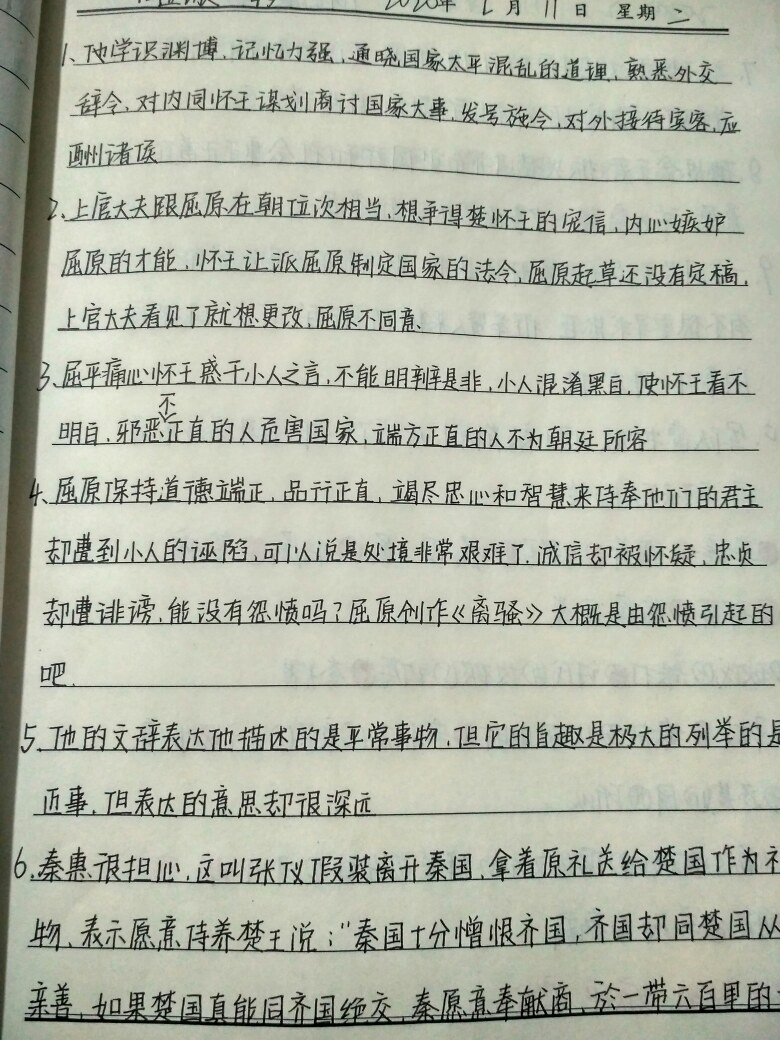 2020年2月11日 星期二
1、他学识渊博，记忆力强，通晓国家太平混乱的道理，熟悉外交
辞令，对内同怀王谋划商讨国家大事，发号施令，对外接待宾客，应
酬州诸侯
2、上官大夫跟屈原在朝位次相当，想争得楚怀王的宠信，内心嫉妒
屈原的才能，怀王让派屈原制定国家的法令，屈原起草还没有定稿，
上官大夫看见了就想更改，屈原不同意、
3、屈平痛心怀王惑于小人之言，不能明辨是非，小人混淆黑白，使怀王看不
明白，邪恶不正直的人危害国家，端方正直的人不为朝廷所容
4、屈原保持道德端正，品行正直，竭尽忠心和智慧来侍奉他们的君主
却遭到小人的诬陷，可以说是处境非常艰难了，诚信却被怀疑，忠贞
却遭诽谤，能没有怨愤吗？屈原创作《离骚》大概是由怨愤引起的
吧．
5、他的文辞表达他描述的是平常事物，但它的旨趣是极大的列举的是
近事，但表达的意思却很深远
6、秦惠很担心，这叫张仪假装离开秦国，拿着厚礼送给楚国作为礼
物，表示愿意侍养楚王说；"秦国十分憎恨齐国，齐国却同楚国从
亲善，如果楚国真能同齐国绝交，秦愿意奉献商，於一带六百里的